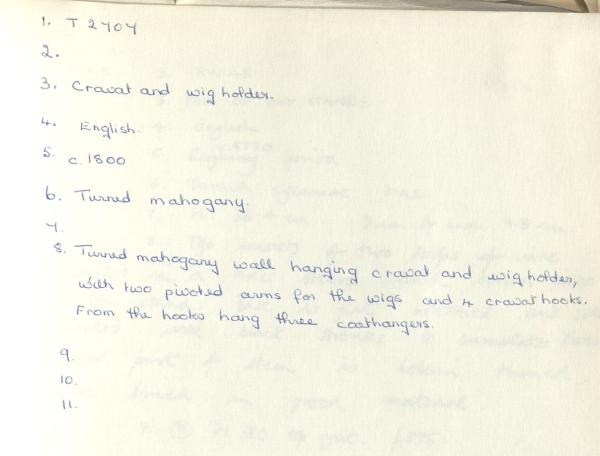 1. T 2707
2.
3. Cravat and wig holder.
4. English.
5. c. 1800
6. Turned mahogany.
7.
8. Turned mahogany wall hanging cravat and wig holder,
with two pivoted arms for the wigs and 4 cravat hooks.
From the hooks hang three coathangers.
9.
10.
11.